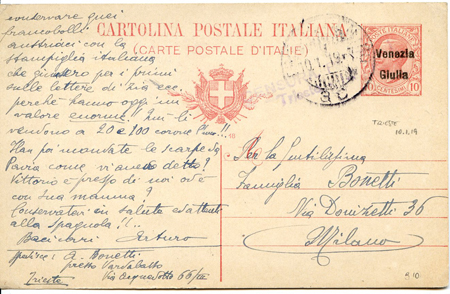 conservare quei
francobolli
austriaci con la
stampiglia italiana
che giudero per i primi
sulle lettere di Zia ecc.
perché hanno oggi un
valore enorme! Qui li
vendono a 20 e 100 corone l'uno!!
Han poi mandate le scarpe da
Pavia come vi avevo detto?
Vittorio è presso di noi od è
con sua mamma?
Conservatevi in salute ed attenti
alla spagnola!!..
Bacioni Arturo
A. Bonetti
presso
Via Acquedotto 66/III
Trieste
CARTOLINA POSTALE ITALIANA
(CARTE POSTALE D'ITALIE)
Venezia
Giulia
10
CENTESIMI
10
TRIESTE
10.1.19
Per la Gentilissima
Famiglia Bonetti
Via Donizetti 36
Milano